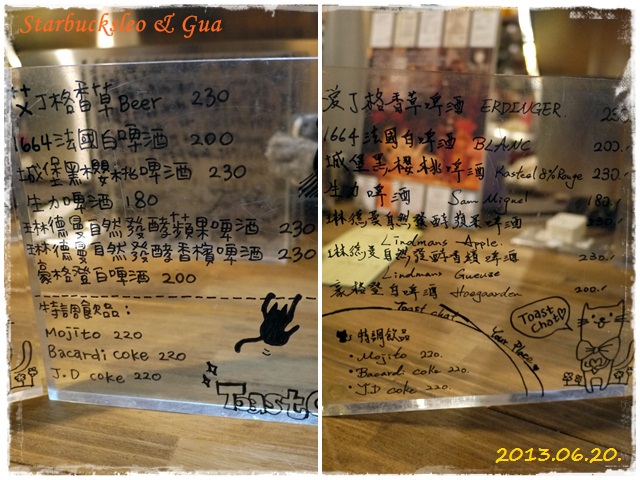 Starbucksleo & Gua
丁格香草Beer 230
1664法國白啤酒 200
城堡黑櫻桃啤酒 230
生力啤酒 180
琳德曼自然發酵蘋果啤酒 230
琳德曼自然發酵香檳啤酒 230
豪格登白啤酒 200
特調飲品：
Mojito 220
Bacardi coke 220
J.D coke 220
Toast C
艾丁格香草啤酒 ERDINGER
1664法國白啤酒 BLANC 200.
城堡黑櫻桃啤酒 Kasteel 8% Rouge 230.
生力啤酒 San Miguel 180.
琳德曼自然發酵蘋果啤酒
Lindmans Apple.
琳德曼自然發酵香檳啤酒 230.
Lindmans Gueuse
豪格登白啤酒 Hoegaarden 200.
Toast chat
Your Place
Toast Chat
特調飲品
• Mojito 220.
• Bacardi coke 220.
• J.D coke 220.
2013.06.20.